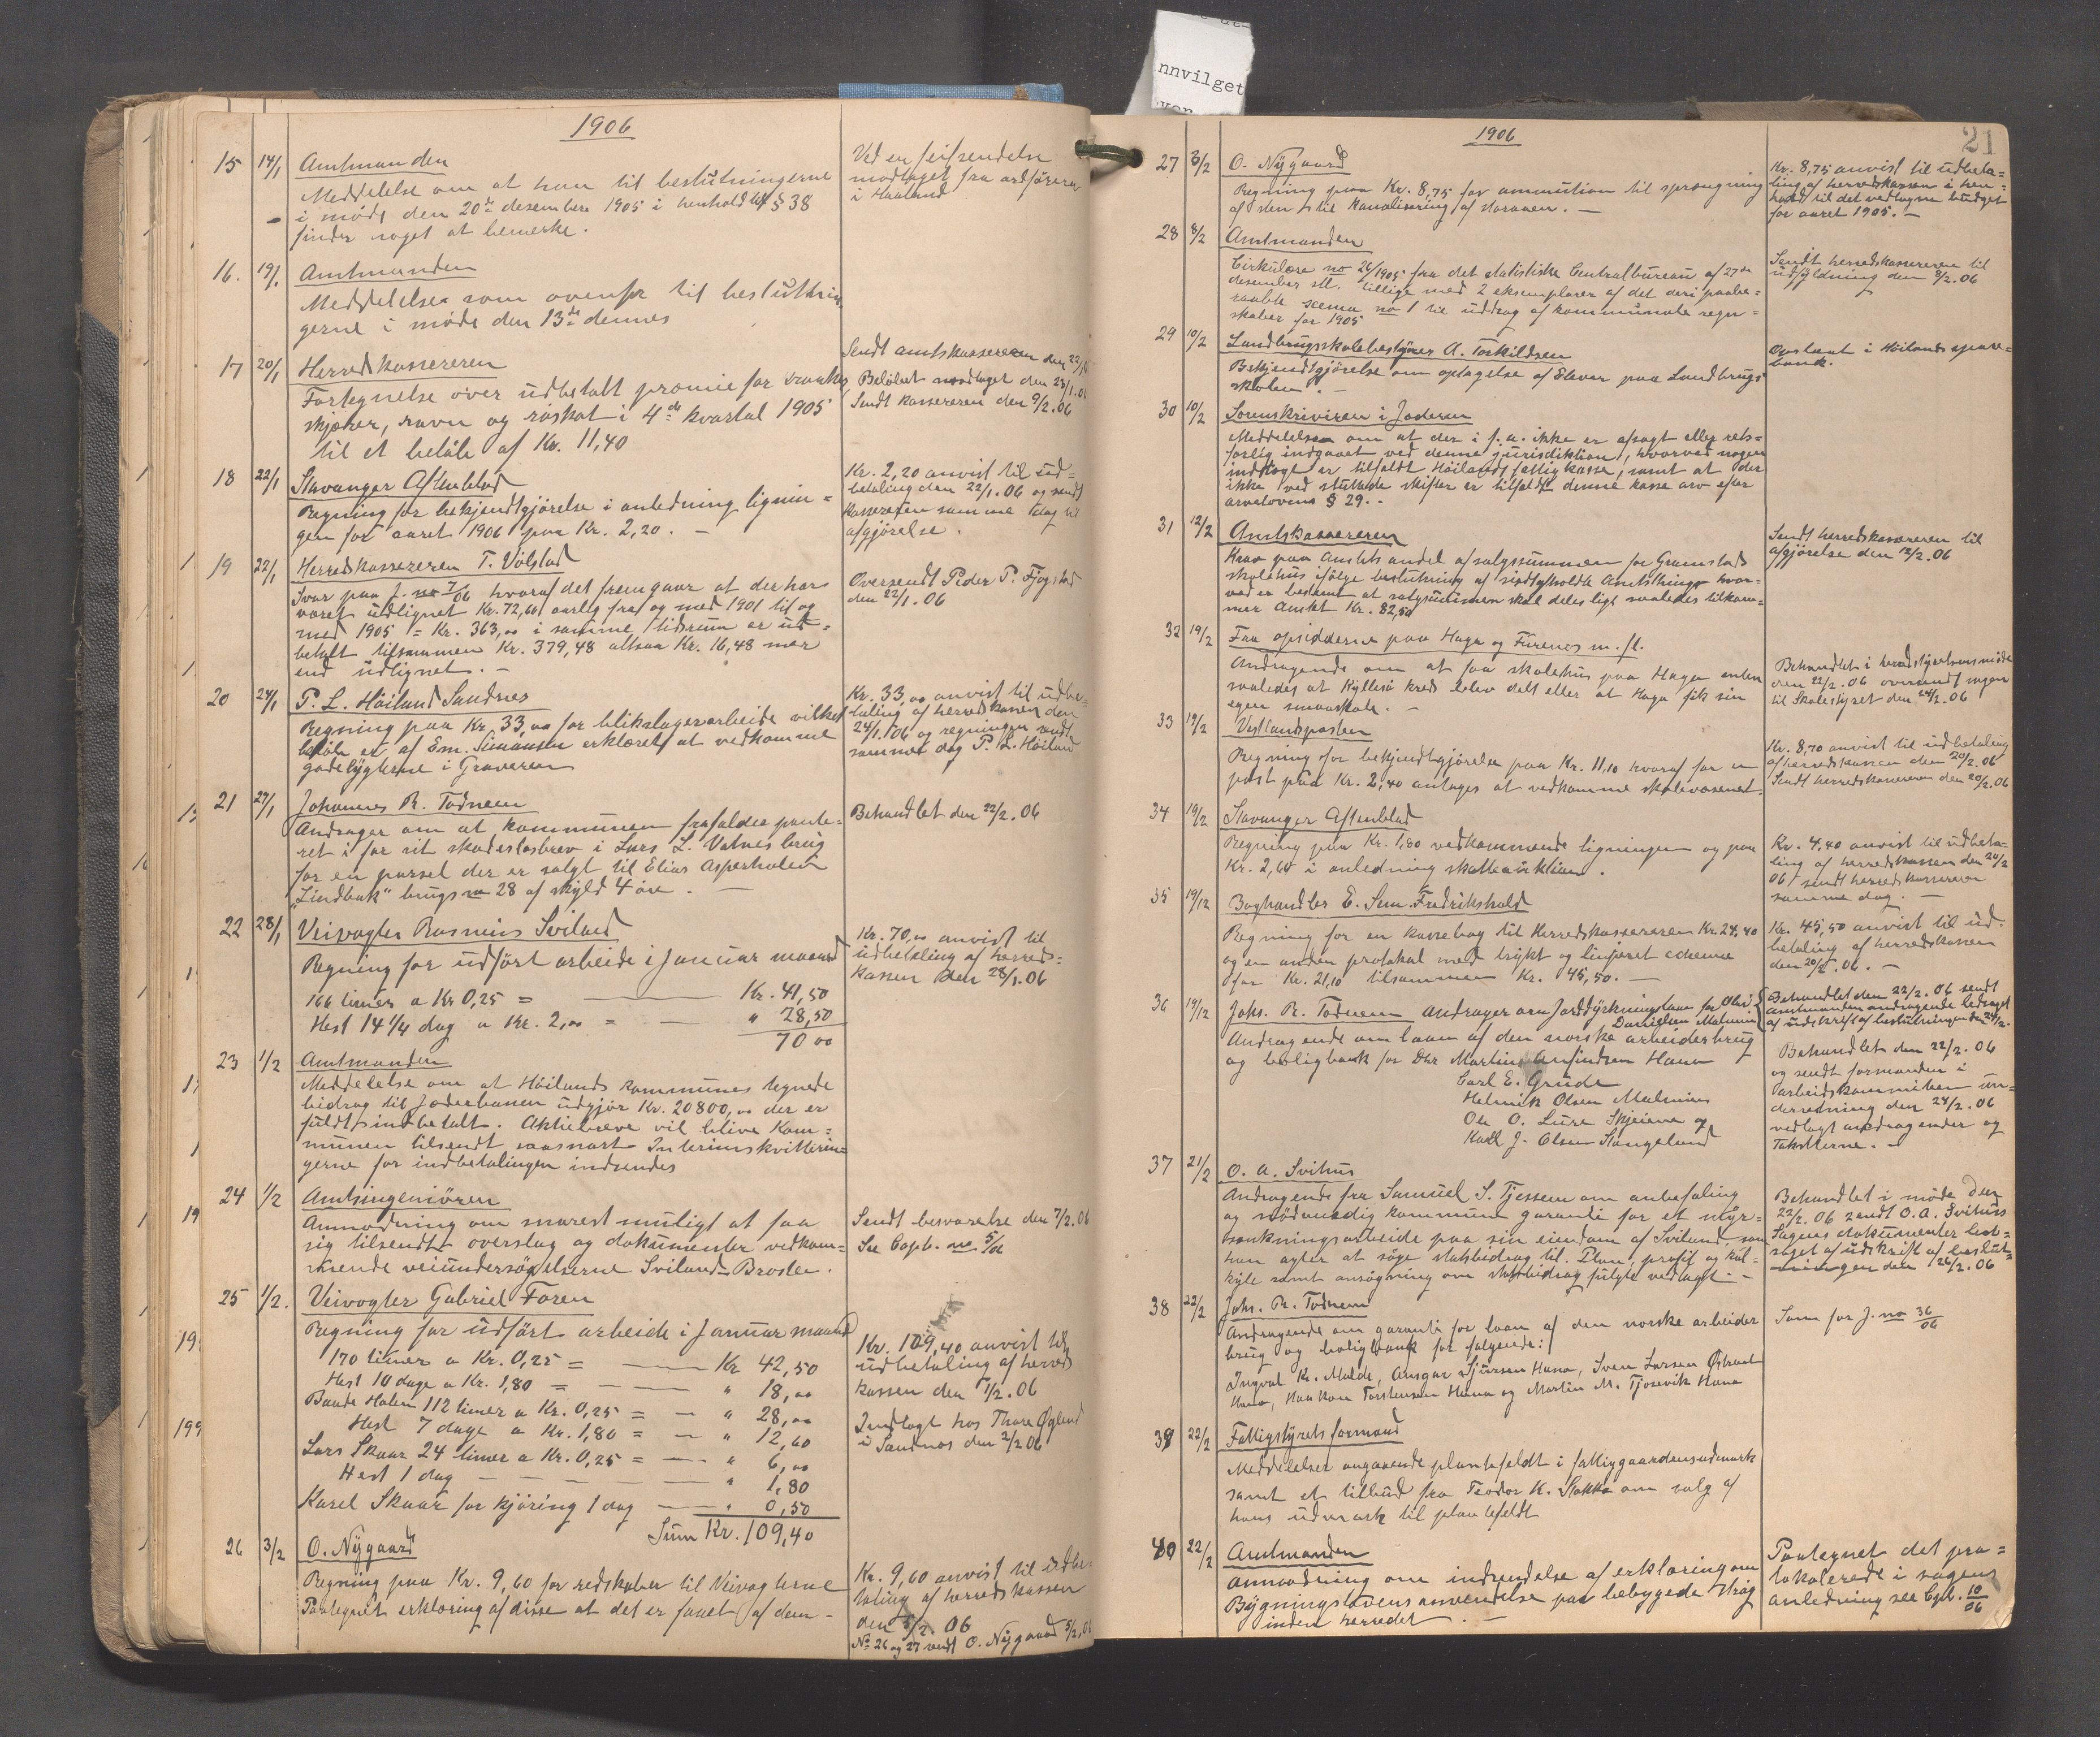 1906
15 14/1 Amtmanden
Meddelelse om at han til beslutningerne
i møde den 20de desember 1905 i henhold til § 38
finder noget at bemerke.
Ved en feilsendelse
modtaget fra ordföreren
i Haaland
16. 19/1 Amtmanden
Meddelelse som ovenfor til beslutnin
gerne i møde den 13de dennes
17 20/1 Herredskassereren
Fortegnelse over udbetalt præmie for kraaker,
skjærer, ravn og röskat i 4de kvartal 1905
til et beløb af Kr. 11,40
Sendt amtskassereren den 22/1
Beløbet modtaget den 29/1.06
Sendt kassereren den 9/2.06
18 22/1 Stavanger Aftenblad
Regning for bekjendtgjörelse i anledning lignin=
gen for aaret 1906 paa Kr. 2,20. –
Kr. 2,20 anvist til ud=
betaling den 22/1.06 og sendt
kassereren samme dag til
afgjörelse.
19 22/1 Herredskassereren T. Volstad
Svar paa J. no 7/06 hvoraf det fremgaar at der har
været udlignet Kr. 72,60 aarlig fra og med 1901 til og
med 1905 = Kr. 363,00 i samme tidsrum er ud=
betalt tilsammen Kr. 379,48 altsaa Kr. 16,48 mer
end udlignet. –
Oversendt Peder P. Fjogstad
den 22/1.06
20 24/1 P. L. Höiland Sandnes
Regning paa Kr. 33,00 for blikslagerarbeide vilket
beløb er af Em. Simonsen erklæret at vedkomme
gadelygterne i Graveren
Kr. 33,00 anvist til udbe=
taling af herredskassen den
24/1.06 og regningen sendt
samme dag P. L. Höiland
21 27/1 Johannes R. Todnem
Andrager om at kommunen frafalder pante=
ret i for sit skadeslösbrev i Lars L. Vatnes brug
for en parsel der er solgt til Elias Asperholen
"Lindbak" brugs no 28 af skyld 4 öre. –
Behandlet den 22/2.06
22 28/1 Veivogter Rasmus Sviland
Regning for udført arbeide i Januar maaned
166 timer a Kr 0,25 = Kr. 41,50
Hest 14 1/4 dag a Kr. 2,00 = " 28,50
70 00
Kr. 70,00 anvist til
udbetaling af herreds=
kassen den 28/1.06
23 1/2 Amtmanden
Meddelelse om at Höilands kommunes tegnede
bidrag til Jæderbanen udgjör Kr. 20800,00 der er
fuldt indbetalt. Aktiebreve vil blive Kom=
munen tilsendt saasnart Interimskvitterin=
gerne for indbetalingen indsendes
24 1/2 Amtsingeniören
Anmodning om snarest muligt at faa
sig tilsendt overslag og dokumenter vedkom=
mende veiundersögelserne Sviland–Brosle.
Sendt besvarelse den 7/2.06
Se Copb. no 5/06
25 1/2. Veivogter Gabriel Foren
Regning for udført arbeide i Januar maaned
170 timer a Kr. 0,25 = Kr 42,50
Hest 10 dage a Kr. 1,80 = " 18,00
Baade Holen 112 timer a Kr. 0,25 = " 28,00
Hest 7 dage a Kr. 1,80 = " 12,60
Lars Skaar 24 timer a Kr. 0,25 = " 6,00
Hest 1 dag " 1,80
Karel Skaar for kjöring 1 dag " 0,50
Sum Kr. 109,40
Kr. 109,40 anvist til
udbetaling af herreds
kassen den 1/2.06
Indlagt hos Thore Øglend
i Sandnes den 2/2 06
26 3/2 O. Nygaard
Regning paa Kr. 9,60 for redskaber til Veivogterne
Paategnet erklæring af disse at det er faaet af dem –
Kr. 9,60 anvist til udbe
taling af herredskassen
den 5/2. 06
No 26 og 27 sendt O. Nygaard 5/2.06
nnvilget
21
1906
27 3/2 O. Nygaard
Regning paa Kr. 8,75 for ammution til sprængning
af sten til Kanalisering af Storaaen. –
Kr. 8,75 anvist til udbeta=
ling af herredskassen i hen=
hold til det vedtagne budget
for aaret 1905. –
28 8/2 Amtmanden
Cirkulære no 26/1905 fra det statistiske Centralbureau af 27de
desember stl. tillige med 2 eksemplarer af det deri paabe=
raabte scema no 1 til uddrag af kommunale regn=
skaber for 1905
Sendt herredskassereren til
udfyldning den 8/2.06
29 10/2 Landbrugsskolebestyrer A. Torkildsen
Bekjendtgjörelse om optagelse af Elever paa Landbrugs
skolen. –
Opslaat i Höilands spare=
bank.
30 10/2 Sorenskriveren i Jæderen
Meddelelse om at der i f. a. ikke er afsagt eller rets=
forlig indgaaet ved denne jurisdiktion, hvorved nogen
indtægt er tilfaldt Höilands fattigkasse, samt at der
ikke ved sluttede skifter er tilfaldt denne kasse arv efter
arvelovens § 29. –
31 12/2 Amtskassereren
Krav paa Amtets andel af salgssummen for Gramstad
skolehus ifölge beslutning af sidstholdte Amtsthing hvor=
ved er bestemt at salgssummen skal deles ligt saaledes tilkom=
mer Amtet Kr. 82,50
Sendt herredskassereren til
afgjörelse den 12/2.06
32 19/2 Fra opsidderne paa Haga og Furenes m. fl.
Andragende om at faa skolehus paa Haga enten
saaledes at Kyllesö kreds blev delt eller at Haga fik sin
egen smaaskole. –
Behandlet i herredstyrelsens möde
den 22/2.06 oversendt sagen
til Skolestyret den 24/2.06
33 19/2 Vestlandsposten
Regning for bekjendtgjørelse paa Kr. 11,10 hvoraf for en
post paa Kr. 2,40 antages at vedkomme skolevæsenet.
Kr. 8,70 anvist til udbetaling
af herredskassen den 20/2.06
Sendt herredskassereren den 20/2.06
34 19/2 Stavanger Aftenblad
Regning paa Kr. 1,80 vedkommende ligningen og paa
Kr. 2,60 i anledning skatteauktion.
Kr. 4.40 anvist til udbeta=
ling af herredskassen den 20/2
06 sendt herredskassereren
samme dag. –
35 19/12 Boghandler E. Sem Fredrikshald
Regning for en kassebog til Herredskassereren Kr. 24,40
og en anden protokol med trykt og linjeret schema
for Kr. 21,10 tilsammen Kr. 45,50. –
Kr. 45,50 anvist til ud=
betaling af herredskassen
den 20/2.06. –
36 19/12 Johs. R. Todnem andrager om Jorddyrkningslaan for Olai
Danielsen Malmin
Behandlet den 22/2.06 sendt
amtmanden andragende ledsaget
af udskrift af beslutningen den 24/2.
Andragende om laan af den norske arbeiderbrug
og boligbank for Dhr Martin Arnfindsen Hana
Carl E. Grude
Helmik Olsen Malmin
Ole O. Lure Skjeiene og
Karl J. Olsen Stangeland
Behandlet den 22/2.06
og sendt formanden i
arbeidskommiteen un=
derretning den 24/2.06
vedlagt andragender og
Taksterne. –
37 21/2 O. A. Svihus
Andragende fra Samuel S. Tjessem om anbefaling
og nödvendig kommune garanti for et myr=
sænkningsarbeide paa sin eiendom af Sviland, som
han agter at söge statsbidrag til. Plan, profil og kal=
kyle samt ansögning om statsbidrag fulgte vedlagt. –
Behandlet i möde den
22/2.06 sendt O. A. Svihus
Sagens dokumenter led=
saget af udskrift af beslut=
ningen den 26/2.06
38 22/2 Johs. R. Todnem
Andragende om garanti for laan af den norske arbeider
brug og boligbank for følgende:
Ingval K. Malde, Ansgar Sjursen Hana, Sven Larsen Østraat
Hana, Haakon Torstensen Hana og Martin M. Tjosevik Hana
Som for J. no 36/06
39 22/2 Fattigstyrets formand
Meddelelser angaaende plantefeldt i fattiggaardens udmark
samt et tilbud fra Teodor K. Stokka om salg af
hans udmark til plantefeldt
40 22/2 Amtmanden
Anmodning om indsendelse af erklæring om
Bygningslovens anvendelse paa bebyggede strög
inden herredet. –
Paategnet det pro=
tokolerede i sagens
anledning see Cpb. 10/06